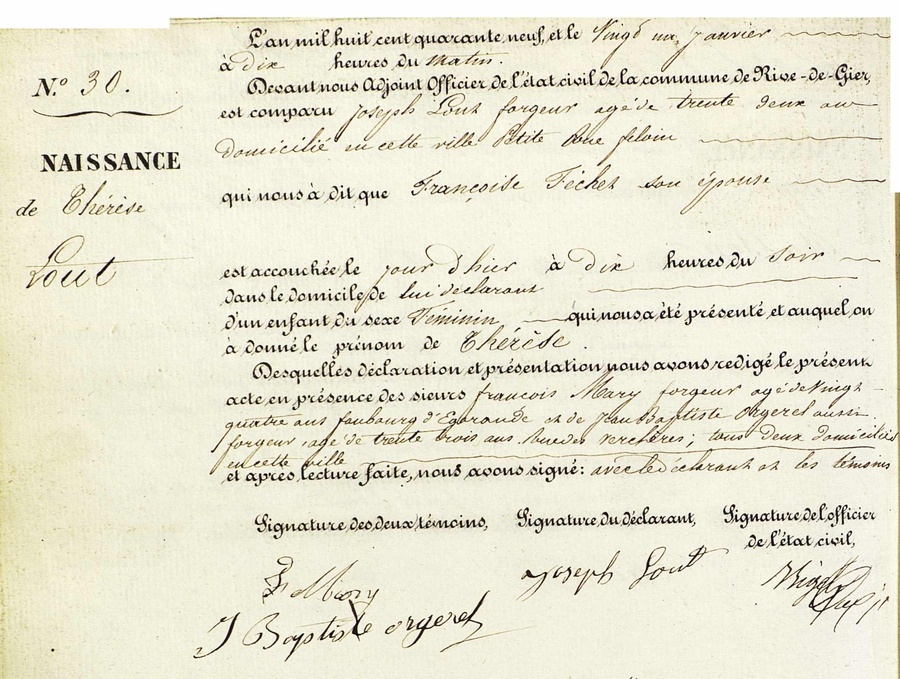 N.º 30.
NAISSANCE
de Thérèse
Lout
L'an mil huit cent quarante neuf, et le Vingt un, Janvier
à dix heures du Matin.
Devant nous Adjoint Officier de l'état civil de la commune de Rive-de-Gier,
est comparu Joseph Lout forgeur agé de trente deux ans
domicilié en cette ville Petite Rue feloin
qui nous à dit que Françoise Féchet son épouse
est accouchée le jour d'hier à dix heures du Soir
dans le domicile de lui déclarant
d'un enfant du sexe Féminin qui nous a été présenté et auquel on
à donné le prénom de Thérèse.
Desquelles déclaration et présentation nous avons redigé le présent
acte en présence des sieurs françois Mary forgeur agé de Vingt
quatre ans faubourg d'Egarande et de Jean Baptiste Orgeret aussi
forgeur, agé de trente trois ans. Rue des Verchères; tous deux domiciliés
en cette ville
et après lecture faite, nous avons signé: avec le déclarant et les témoins
Signature des deux témoins, Signature du déclarant, Signature de l'officier
de l'état civil,
F Mary
Joseph Lout
J Baptiste orgeret